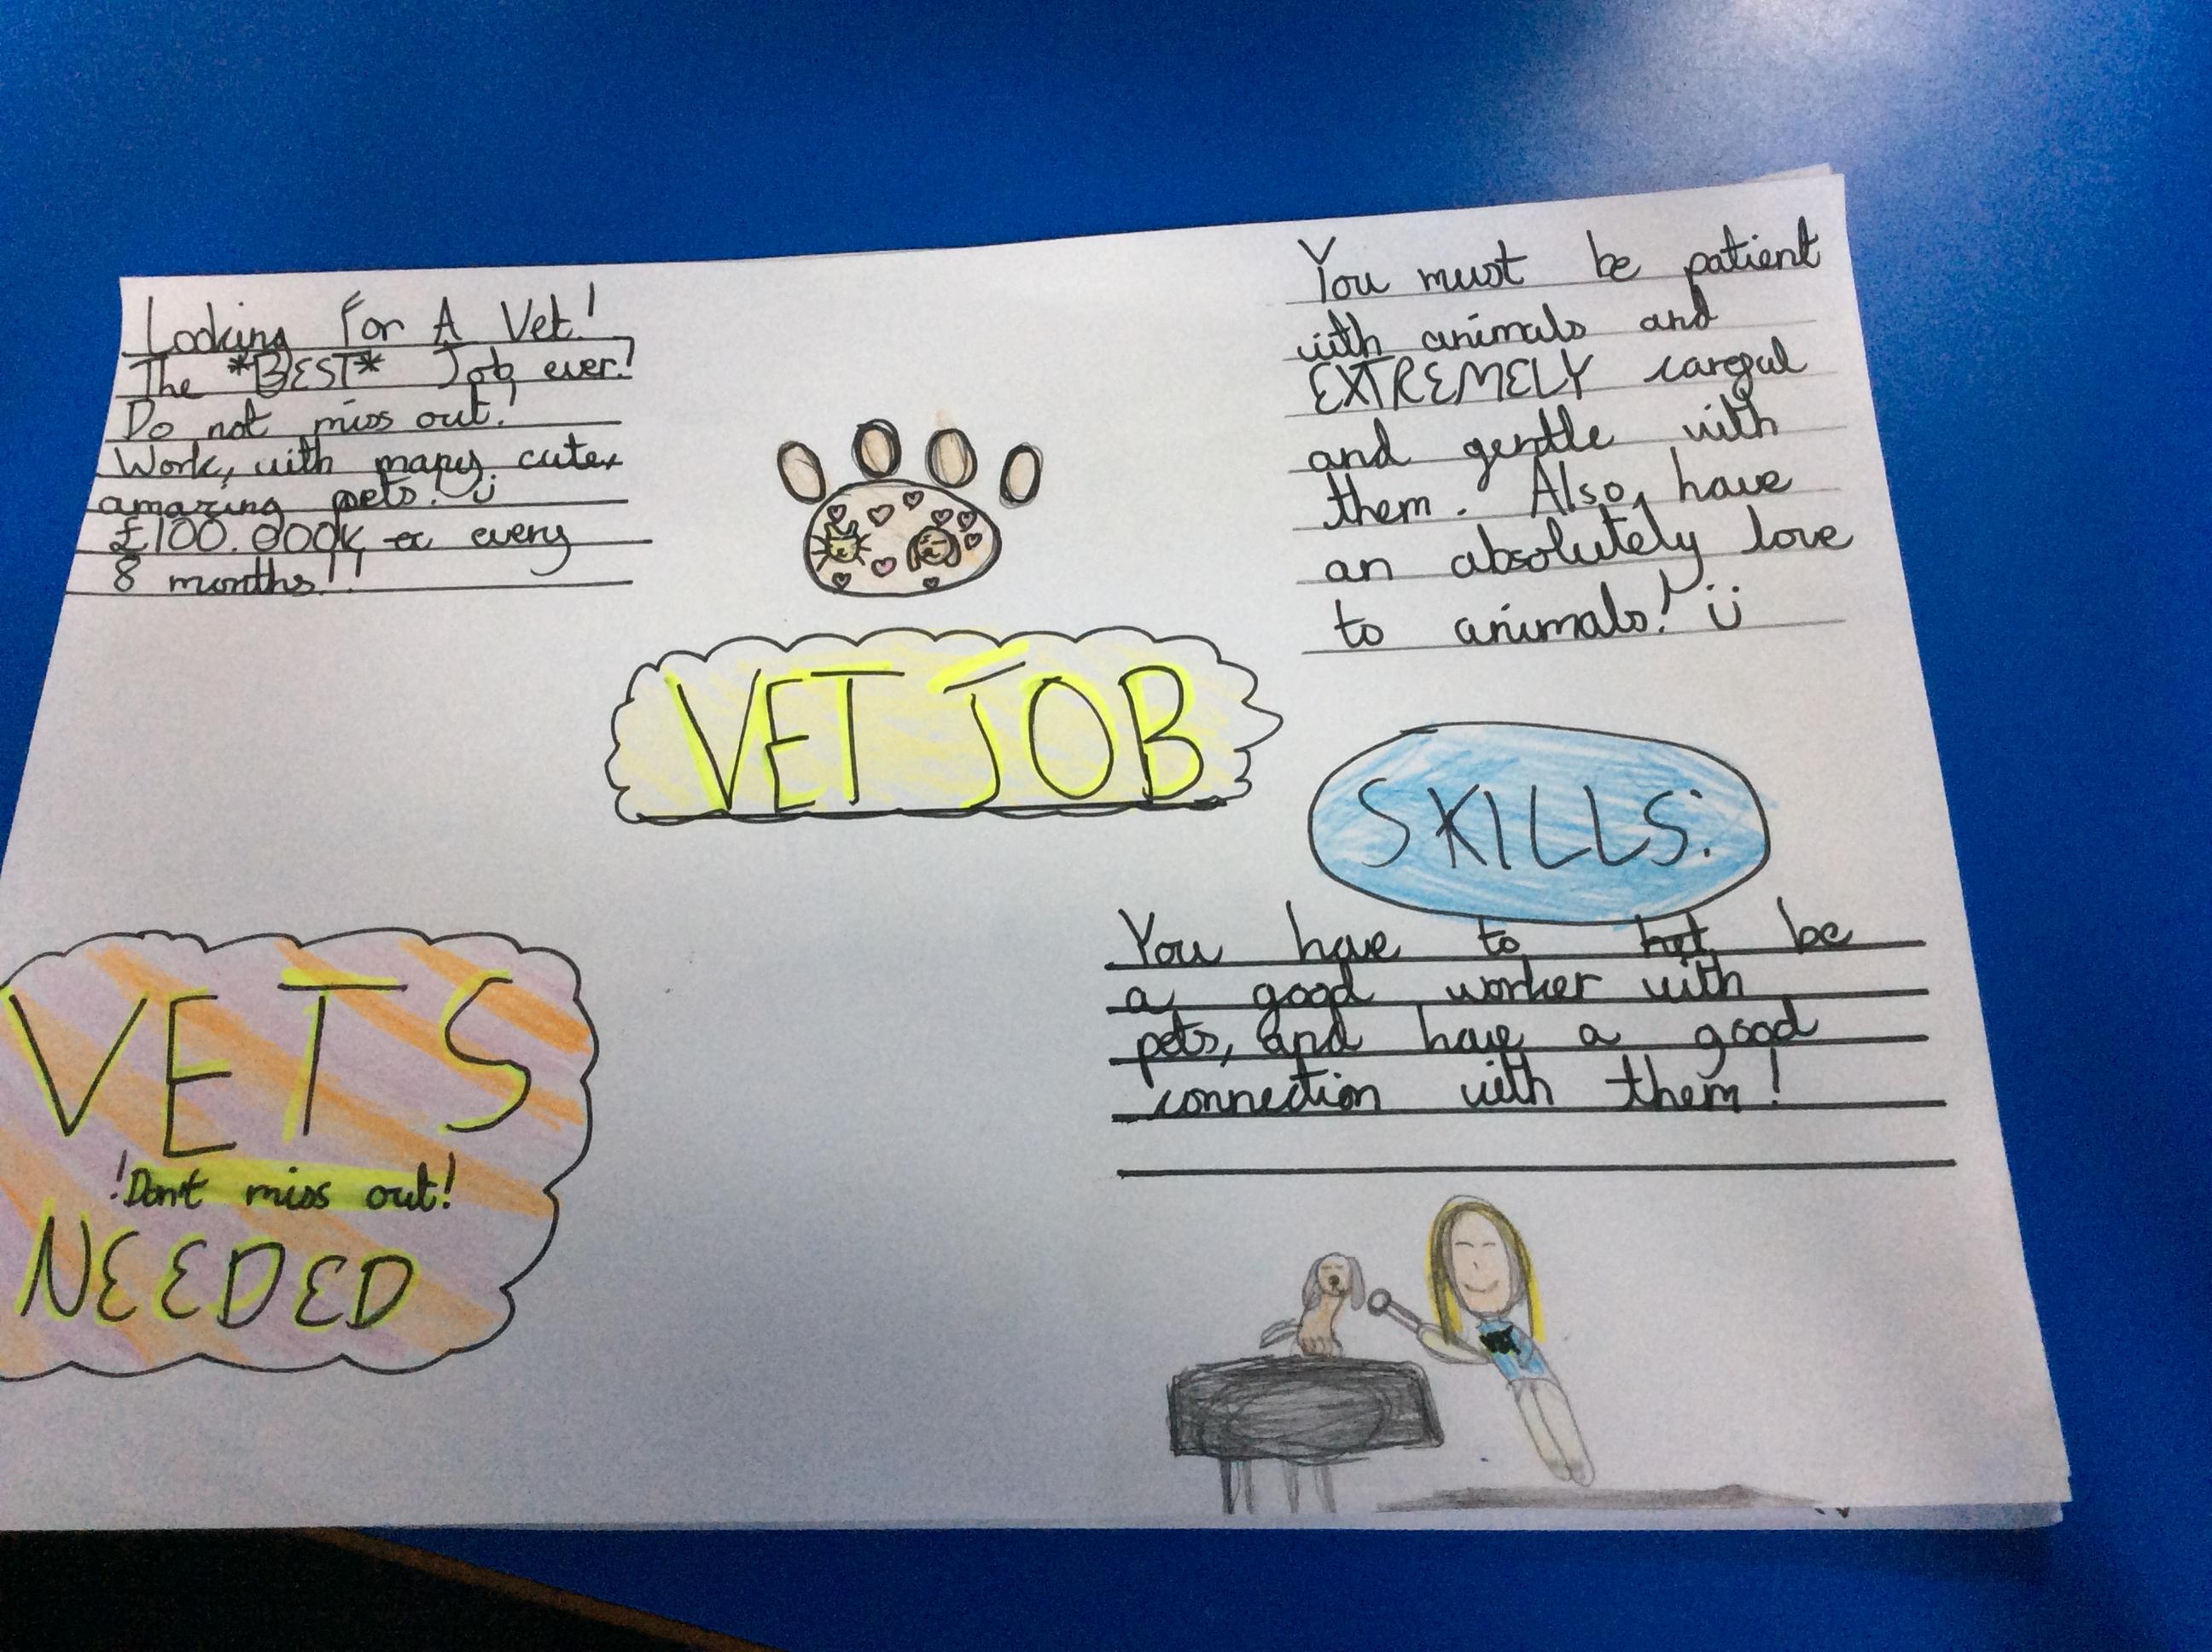 Looking For A Vet!
The *BEST* Job ever!
Do not miss out!
Work, with many cute,
amazing pets! ü
£100.000K every
8 months!!
You must be patient
with animals and
EXTREMELY careful
and gentle with
them. Also, have
an absolutely love
to animals! ü
VET JOB
SKILLS:
You have to be
a good worker with
pets, and have a good
connection with them!
VETS
!Don't miss out!
NEEDED
VET